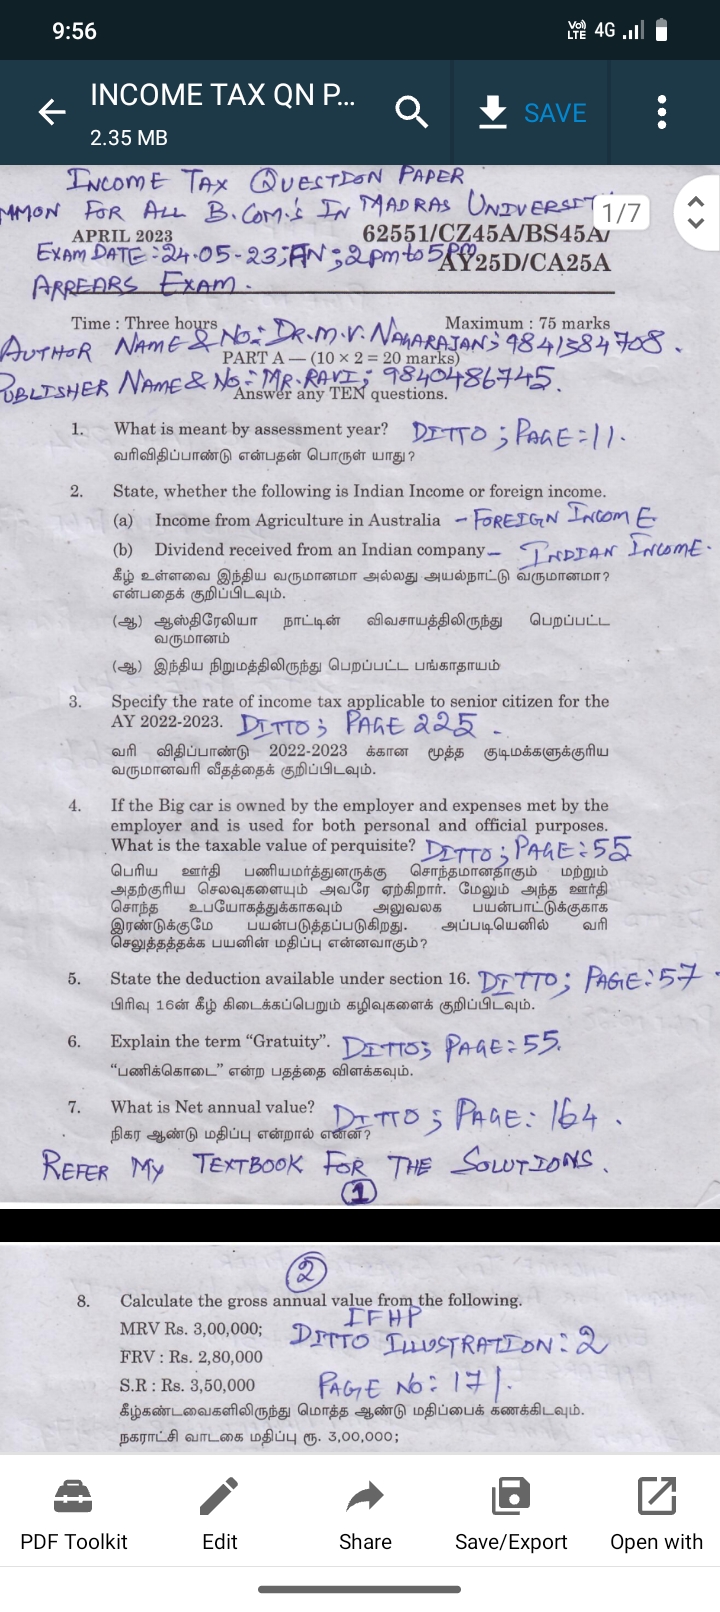 9:56
Vo) LTE 4G
INCOME TAX QN P...
2.35 MB
SAVE
INCOME TAX QUESTION PAPER
MMON FOR ALL B.COM.'S IN MADRAS UNIVERSIT
1/7
APRIL 2023
62551/CZ45A/BS45A/
EXAM DATE :24.05-23; AN ; 2pm to 5pm
AY25D/CA25A
ARREARS EXAM.
Time : Three hours
Maximum : 75 marks
AUTHOR NAME & NO: DR.M.V. NAGARAJAN; 9841384708.
PART A — (10 × 2 = 20 marks)
PUBLISHER NAME & NO: MR. RAVI; 9840486745.
Answer any TEN questions.
1. What is meant by assessment year? DITTO ; PAGE=11.
வரிவிதிப்பாண்டு என்பதன் பொருள் யாது?
2. State, whether the following is Indian Income or foreign income.
(a) Income from Agriculture in Australia - FOREIGN INCOME
(b) Dividend received from an Indian company – INDIAN INCOME.
கீழ் உள்ளவை இந்திய வருமானமா அல்லது அயல்நாட்டு வருமானமா?
என்பதைக் குறிப்பிடவும்.
(ஆ) ஆஸ்திரேலியா நாட்டின் விவசாயத்திலிருந்து பெறப்பட்ட
வருமானம்
(ஆ) இந்திய நிறுமத்திலிருந்து பெறப்பட்ட பங்காதாயம்
3. Specify the rate of income tax applicable to senior citizen for the
AY 2022-2023. DITTO ; PAGE 225 .
வரி விதிப்பாண்டு 2022-2023 க்கான மூத்த குடிமக்களுக்குரிய
வருமானவரி வீதத்தைக் குறிப்பிடவும்.
4. If the Big car is owned by the employer and expenses met by the
employer and is used for both personal and official purposes.
What is the taxable value of perquisite? DITTO ; PAGE: 55
பெரிய ஊர்தி பணியமர்த்துனருக்கு சொந்தமானதாகும் மற்றும்
அதற்குரிய செலவுகளையும் அவரே ஏற்கிறார். மேலும் அந்த ஊர்தி
சொந்த உபயோகத்துக்காகவும் அலுவலக பயன்பாட்டுக்குகாக
இரண்டுக்குமே பயன்படுத்தப்படுகிறது. அப்படியெனில் வரி
செலுத்தத்தக்க பயனின் மதிப்பு என்னவாகும்?
5. State the deduction available under section 16. DITTO; PAGE: 57 .
பிரிவு 16ன் கீழ் கிடைக்கப்பெறும் கழிவுகளைக் குறிப்பிடவும்.
6. Explain the term “Gratuity”. DITTO; PAGE: 55.
“பணிக்கொடை” என்ற பதத்தை விளக்கவும்.
7. What is Net annual value? DITTO ; PAGE: 164 .
நிகர ஆண்டு மதிப்பு என்றால் என்ன?
REFER MY TEXTBOOK FOR THE SOLUTIONS.
1
2
8. Calculate the gross annual value from the following.
IFHP
MRV Rs. 3,00,000; DITTO ILLUSTRATION: 2
FRV : Rs. 2,80,000
S.R : Rs. 3,50,000 PAGE NO: 171.
கீழ்கண்டவைகளிலிருந்து மொத்த ஆண்டு மதிப்பைக் கணக்கிடவும்.
நகராட்சி வாடகை மதிப்பு ரூ. 3,00,000;
PDF Toolkit
Edit
Share
Save/Export
Open with